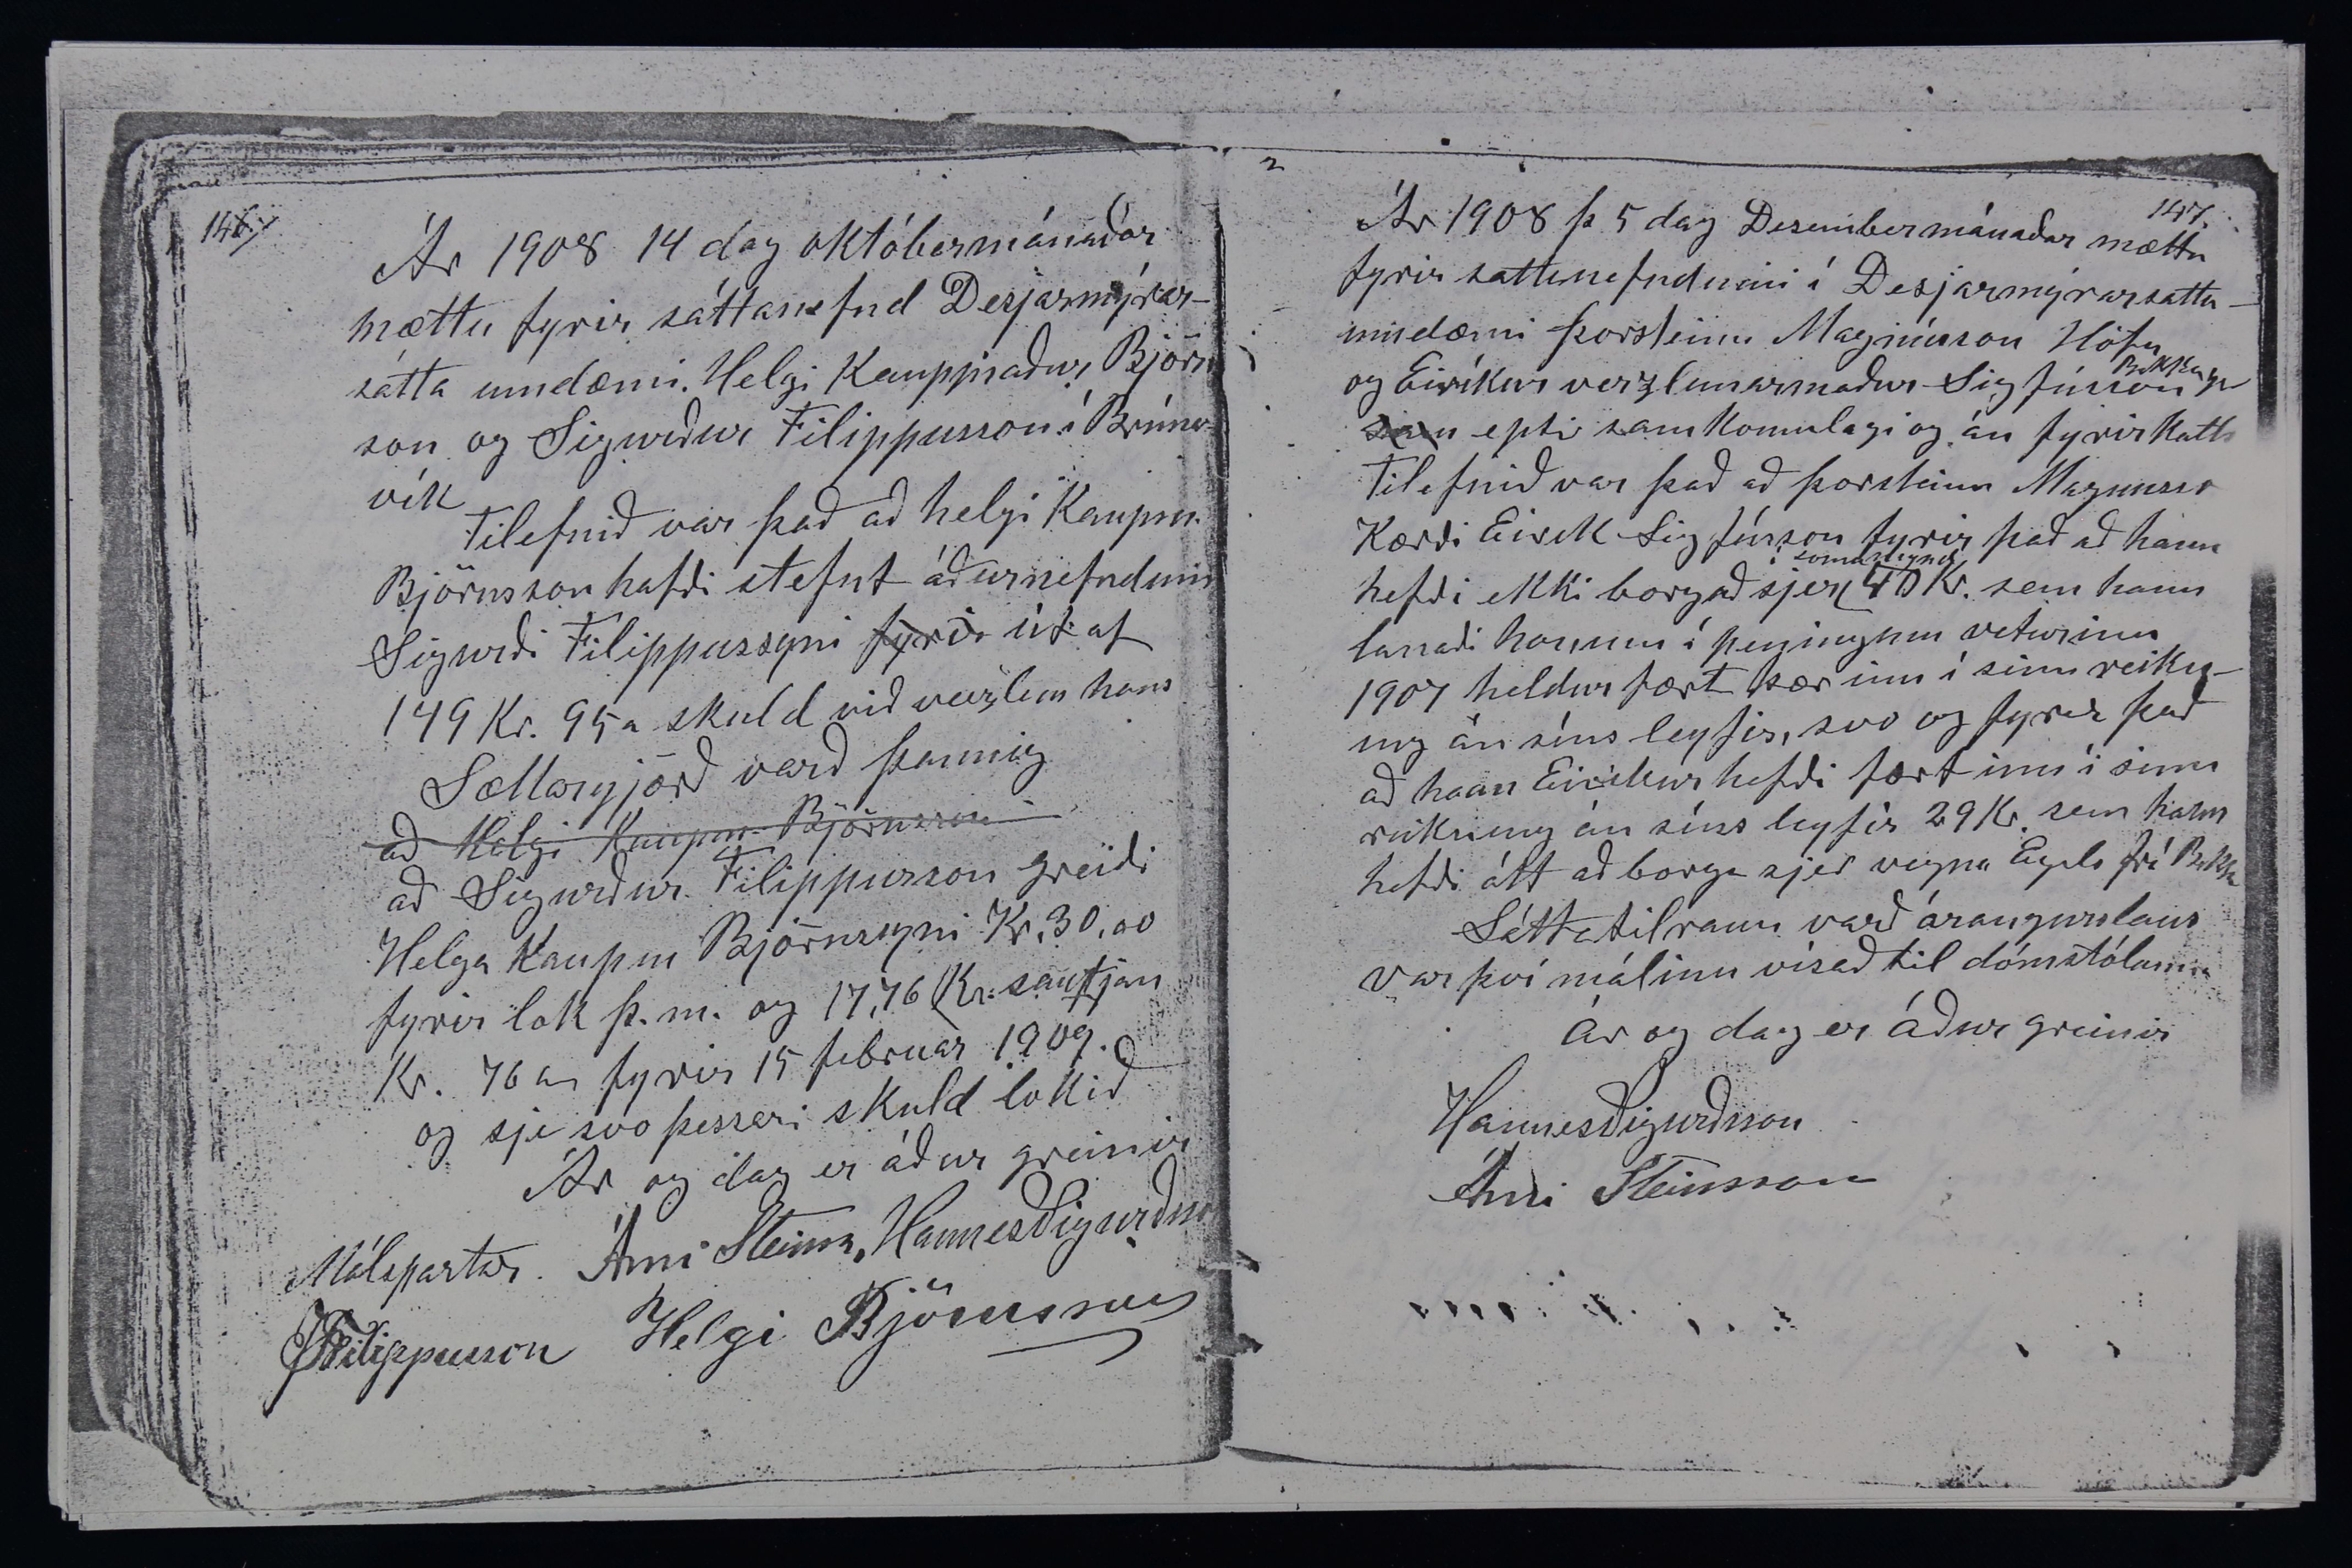 146
Ár 1908 14 dag októbermánaðar
mættu fyrir sáttanefnd Desjarmýrar-
sátta umdæmi. Helgi Kaupmaður Björn
son og Sigurður Filippusson í Brúna
vík
Tilefnið var það að helgi Kaupm.
Björnsson hafði stefnt áðurnefndum
Sigurði Filippussyni fyrir út af
149 Kr. 95a skuld við verzlun hans
Sættargjörð varð þannig
að Helgi Kaupm. Björnsson
að Sigurður Filippusson greiði
Helga Kaupm Björnsyni Kr. 30,00
fyrir lok þ. m. og 17,76 Kr. sautján
Kr. 76 au fyrir 15 februar 1909.
og sje svo þessari skuld lokið
Ár og dag er áður greinir
Málspartar. Árni Steinss, Hannes Sigurðss
SFilippusson Helgi Björnsson
2
147.
Ár 1908 þ 5 dag Desembermánaðar mættu
fyrir sattanefndinni í Desjarmýrarsatta-
umdæmi Þorsteinn Magnússon Höfn
og Eiríkur verzlunarmaður Sigfússon Bakkage
epti samkomulagi og án fyrirkalls
Tilefnið var það að Þorsteinn Magnusso
Kærði Eirik Sigfússon fyrir það að hann
hefði ekki borgað sjer 40 Kr. sem hann
lanaði honum í peningum veturinn
1907 heldur fært þær inn í sinn reikn-
ing án síns leyfis, svo og fyrir það
að hann Eirikur hefði fært inn í sinn
reikning án síns leyfis 29 Kr. sem hann
hefði átt að borga sjer vegna Egils frá Bakka
Sáttatilraun varð árangurslaus
var því málinu vísað til dómstólanna
Ár og dag er áður greinir
Hannes Sigurðsson
Árni Steinsson